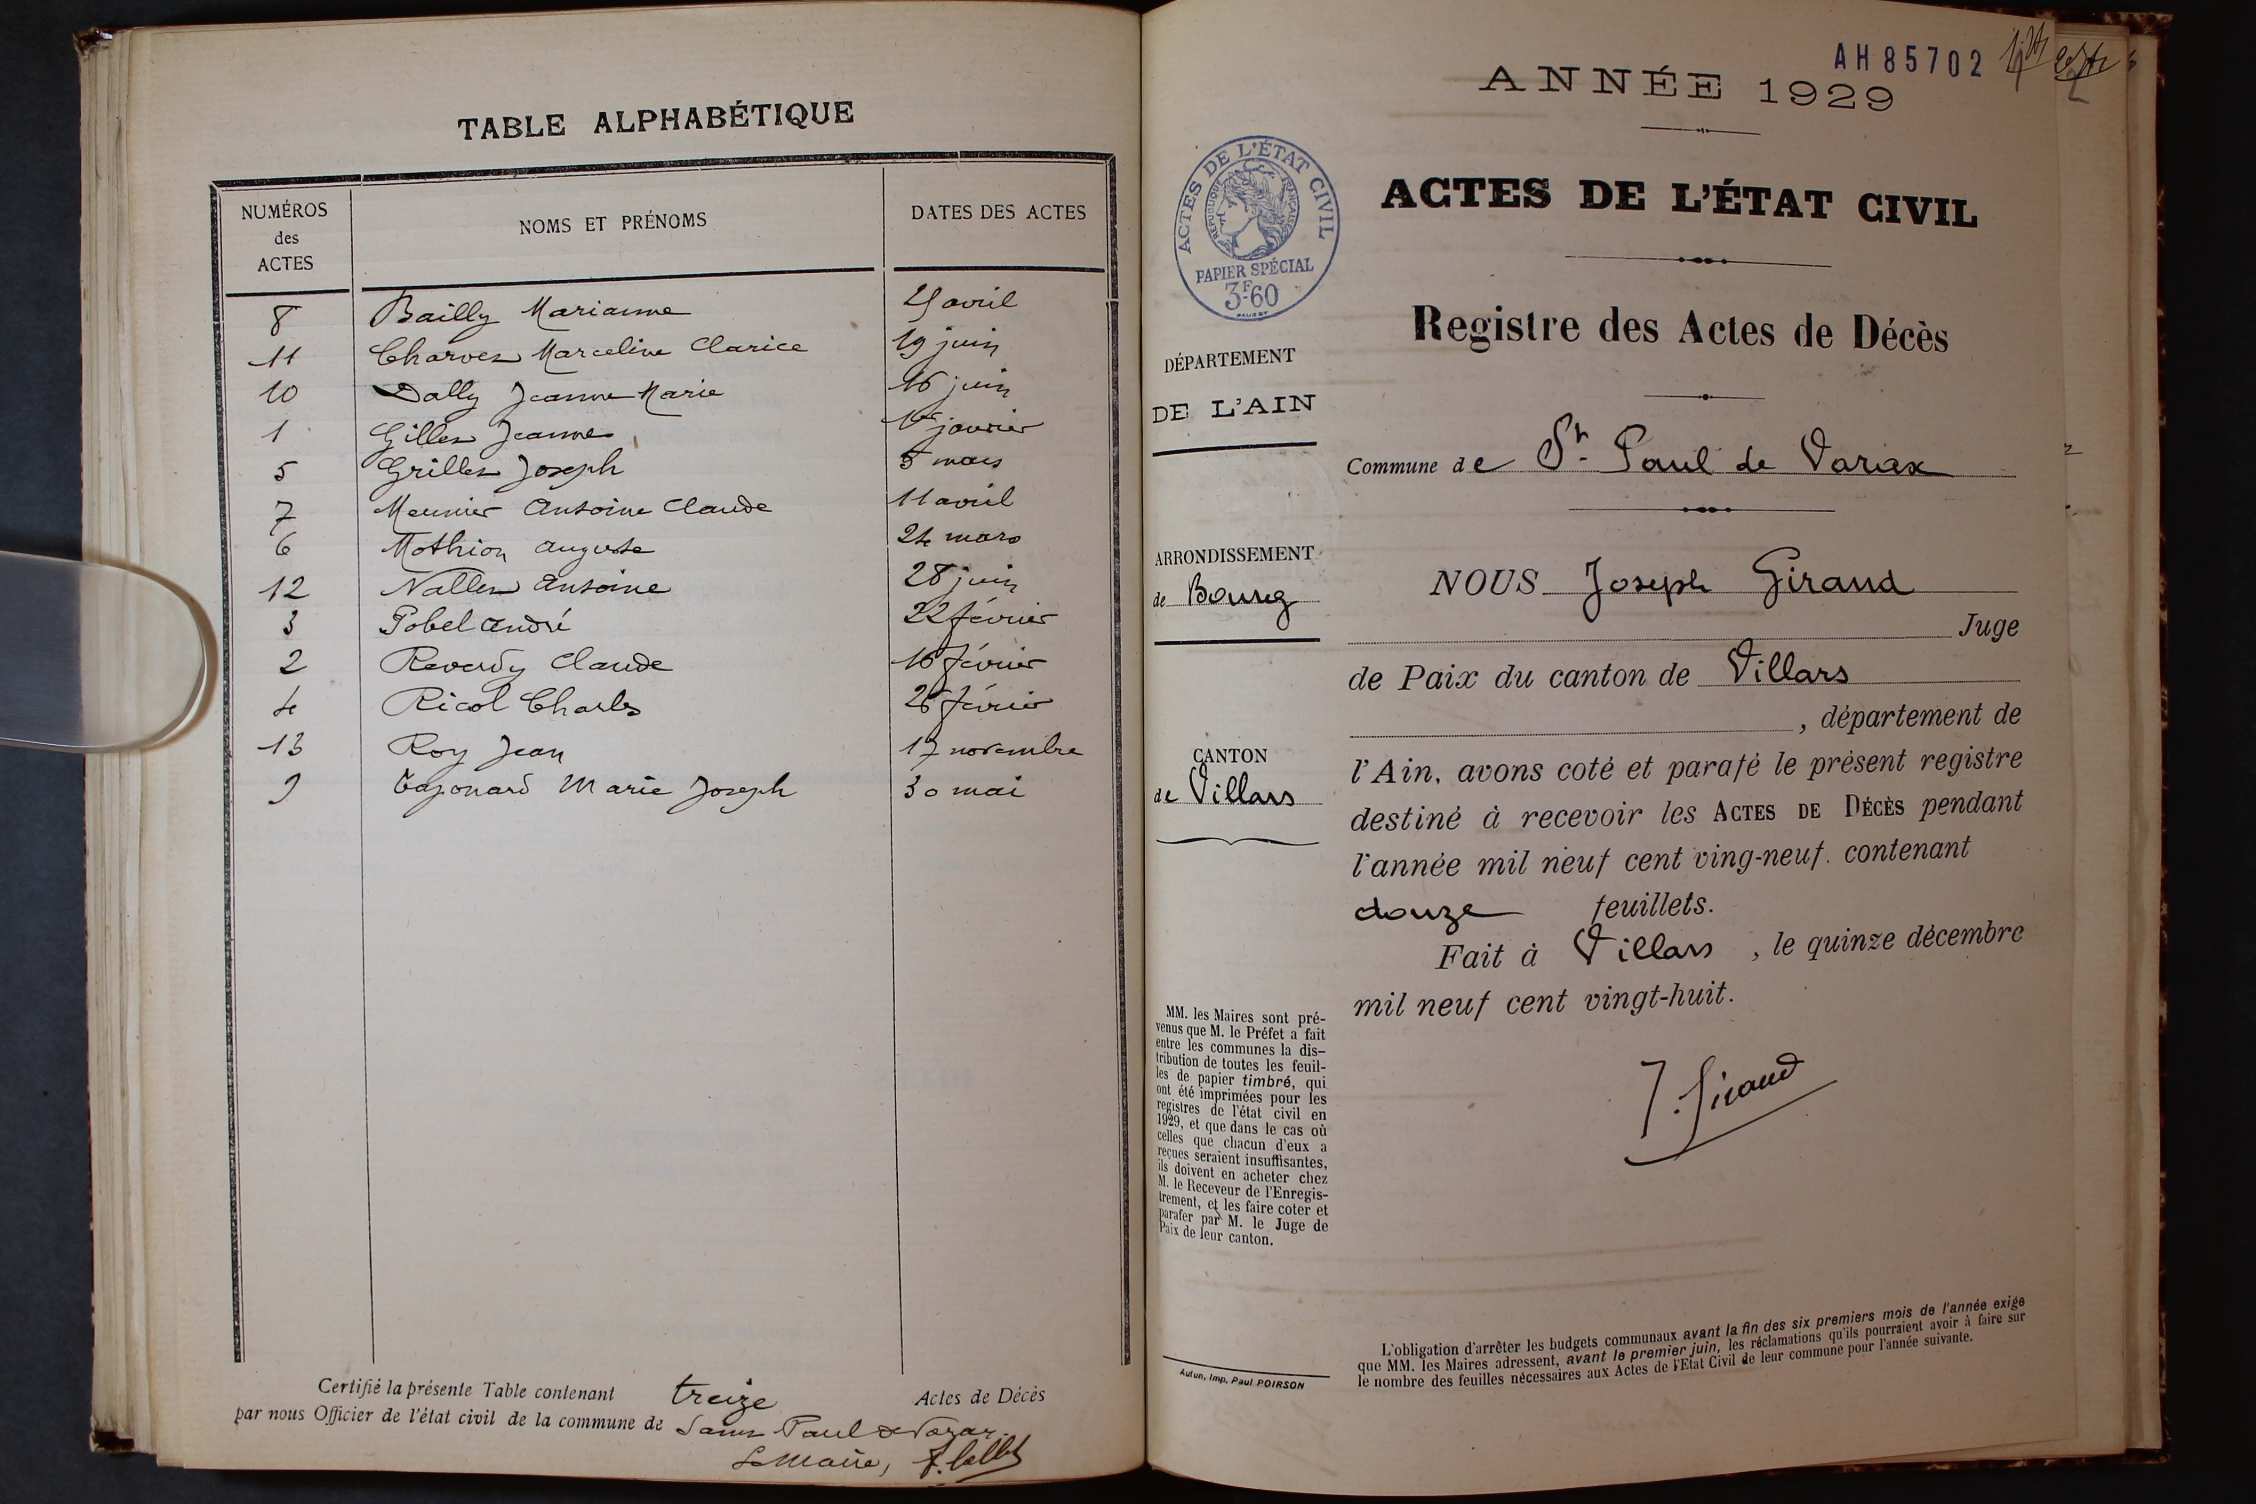 TABLE ALPHABÉTIQUE
NUMÉROS des ACTES NOMS ET PRÉNOMS DATES DES ACTES
8 Bailly Marianne avril
11 Charvet Marceline Clarice 19 juin
10 Dally Jeanne Marie 16 juin
1 Gillet Jeanne 1er janvier
5 Grillet Joseph 5 mars
7 Meunier Antoine Claude 11 avril
6 Mothion Auguste 24 mars
12 Nallet Antoine 28 juin
3 Pobel André 22 février
2 Reverdy Claude 16 février
4 Ricol Charles 26 février
13 Roy Jean 17 novembre
9 Marie Joseph 30 mai
Certifié la présente Table contenant treize Actes de Décès
par nous Officier de l'état civil de la commune de Saint Paul de Varax.
Le Maire,
AH 85702
ANNÉE 1929
ACTES DE L'ÉTAT CIVIL
RÉPUBLIQUE FRANÇAISE
PAPIER SPÉCIAL
3F.60
ACTES DE L'ÉTAT CIVIL
Registre des Actes de Décès
DÉPARTEMENT
DE L'AIN
Commune de St. Paul de Varax
ARRONDISSEMENT
de Bourg
CANTON
de Villars
NOUS Joseph Giraud
Juge
de Paix du canton de Villars
, département de
l'Ain, avons coté et parafé le présent registre
destiné à recevoir les ACTES DE DÉCÈS pendant
l'année mil neuf cent ving-neuf. contenant
douze feuillets.
Fait à Villars, le quinze décembre
mil neuf cent vingt-huit.
J. Giraud
MM. les Maires sont pré-
venus que M. le Préfet a fait
entre les communes la dis-
tribution de toutes les feuil-
les de papier timbré, qui
ont été imprimées pour les
registres de l'état civil en
1929, et que dans le cas où
celles que chacun d'eux a
reçues seraient insuffisantes,
ils doivent en acheter chez
M. le Receveur de l'Enregis-
trement, et les faire coter et
parafer par M. le Juge de
Paix de leur canton.
Autun, Imp. Paul POIRSON
L'obligation d'arrêter les budgets communaux avant la fin des six premiers mois de l'année exige
que MM. les Maires adressent, avant le premier juin, les réclamations qu'ils pourraient avoir à faire sur
le nombre des feuilles nécessaires aux Actes de l'Etat Civil de leur commune pour l'année suivante.